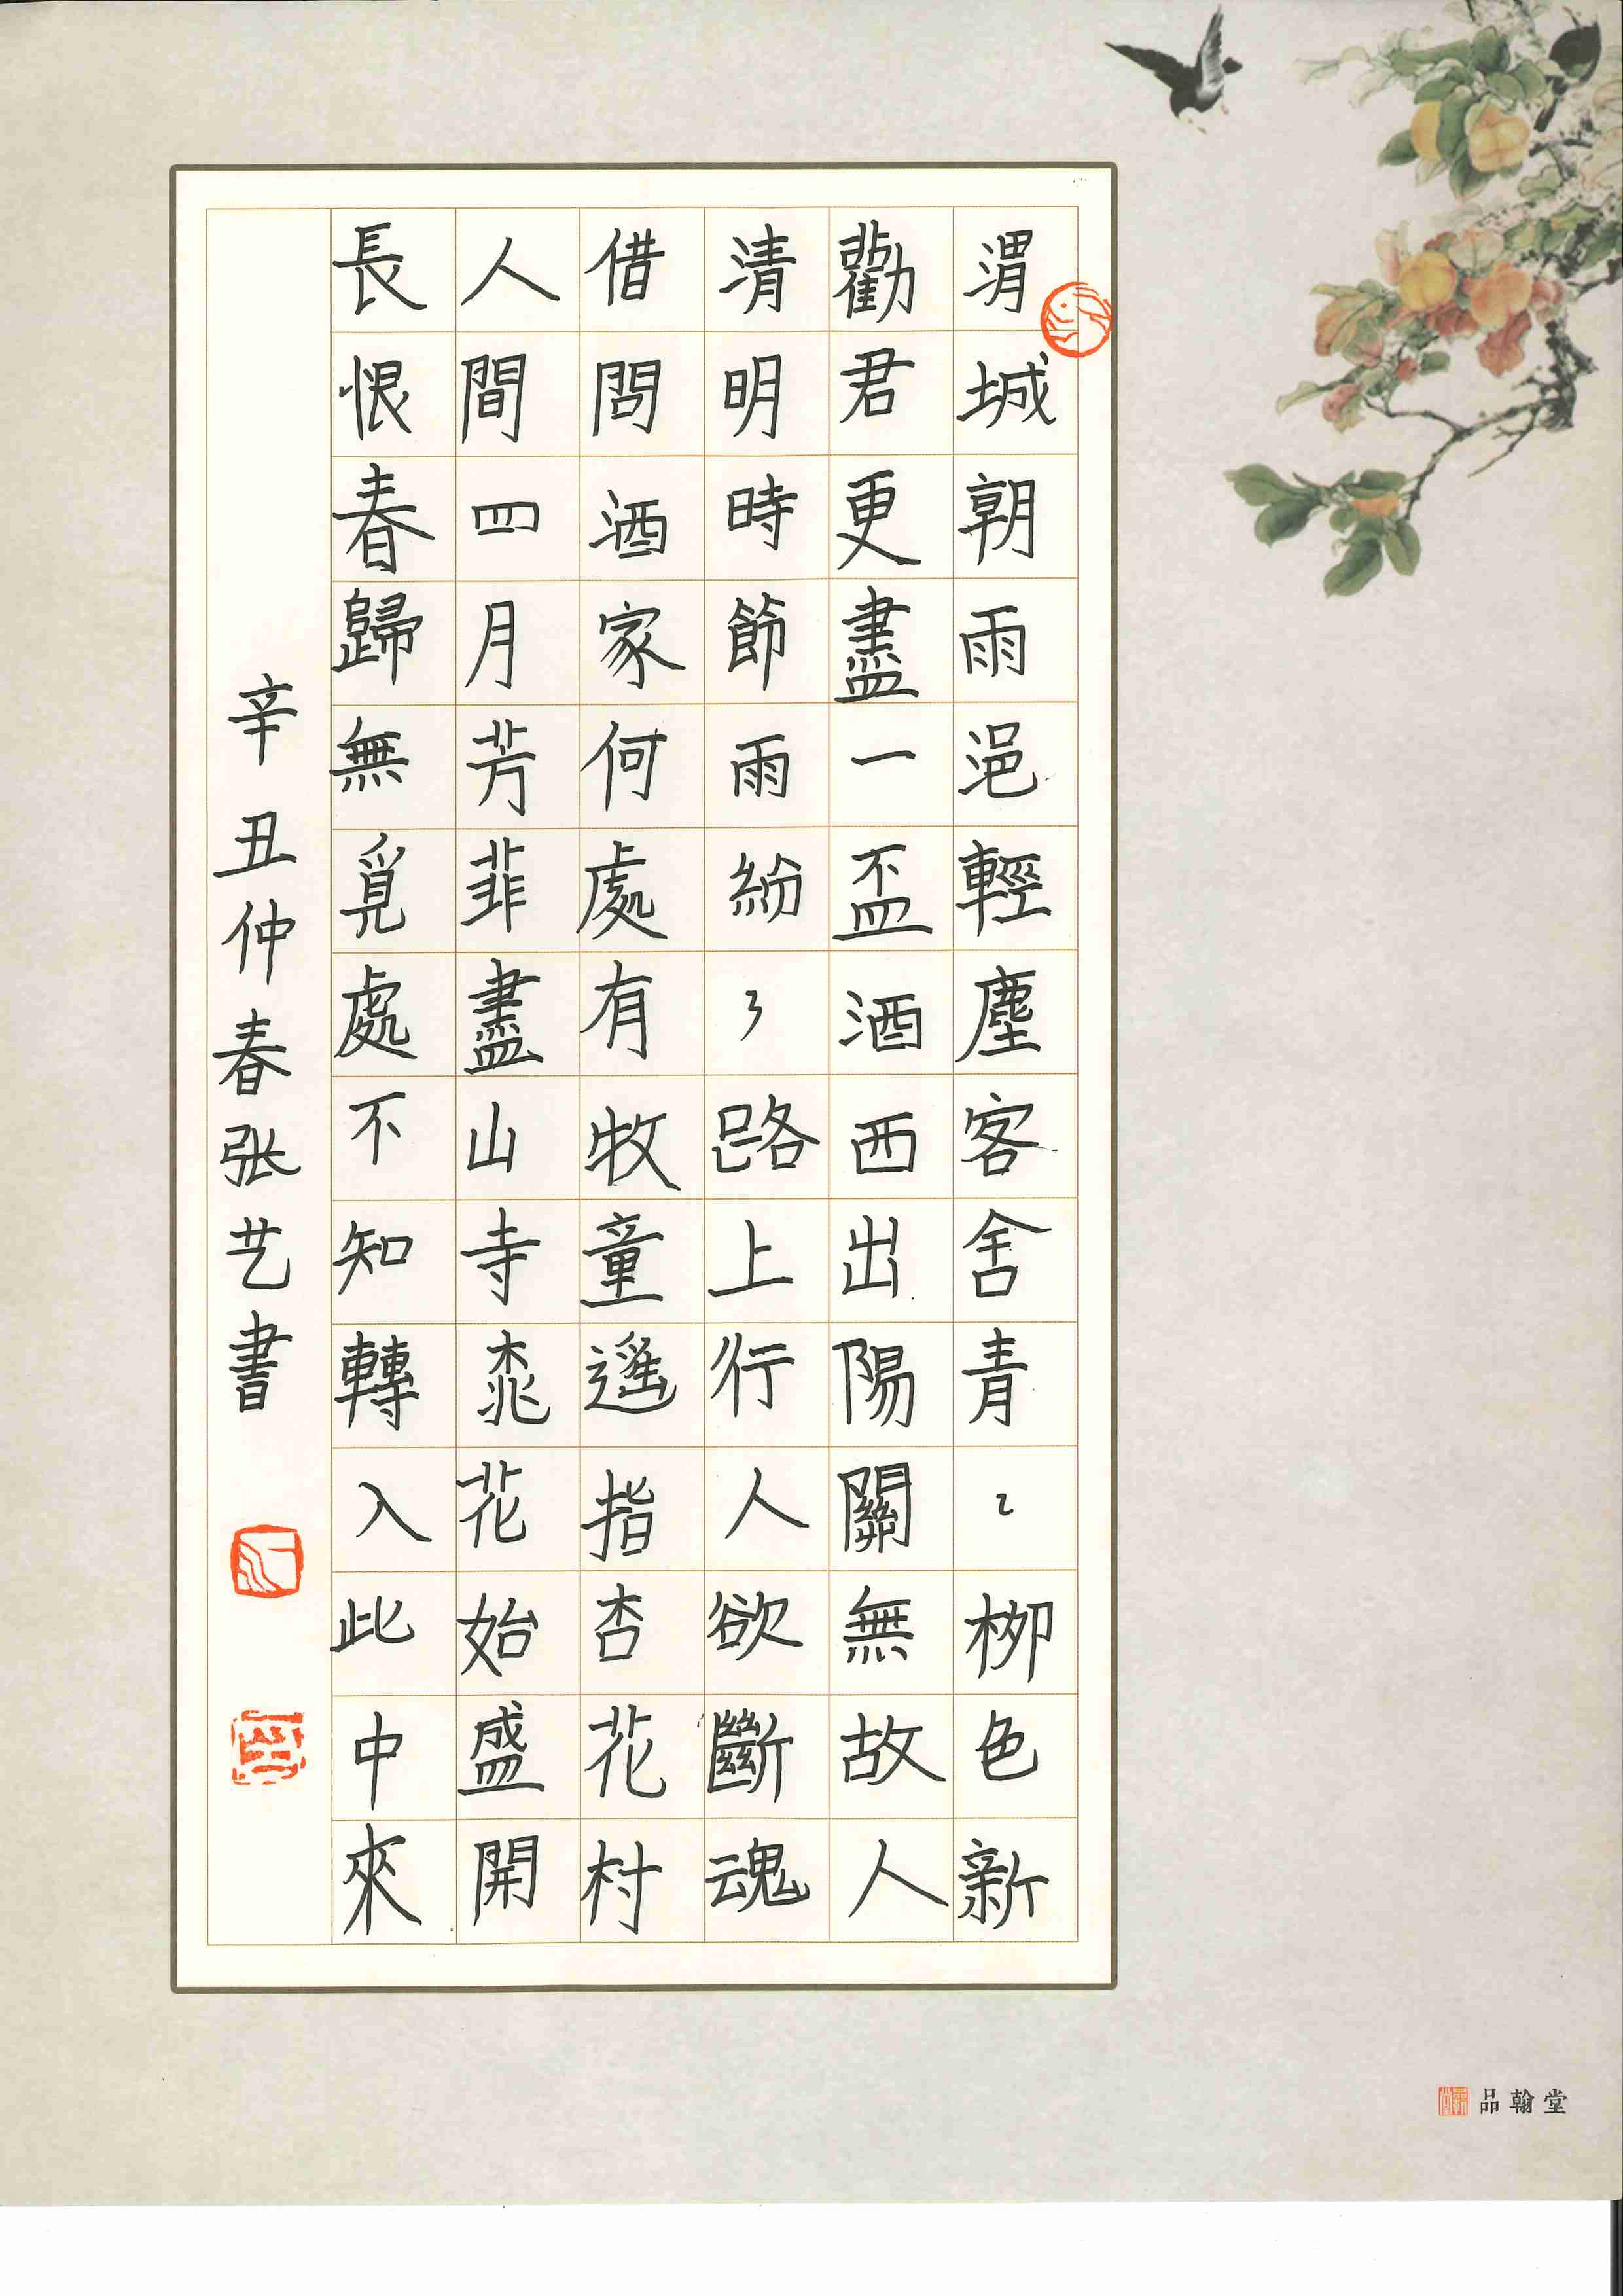 渭城朝雨浥輕塵客舍青〻柳色新
勸君更盡一盃酒西出陽關無故人
清明時節雨紛〻路上行人欲斷魂
借問酒家何處有牧童遥指杏花村
人間四月芳菲盡山寺桃花始盛開
長恨春歸無覓處不知轉入此中來
辛丑仲春张艺書
品翰堂